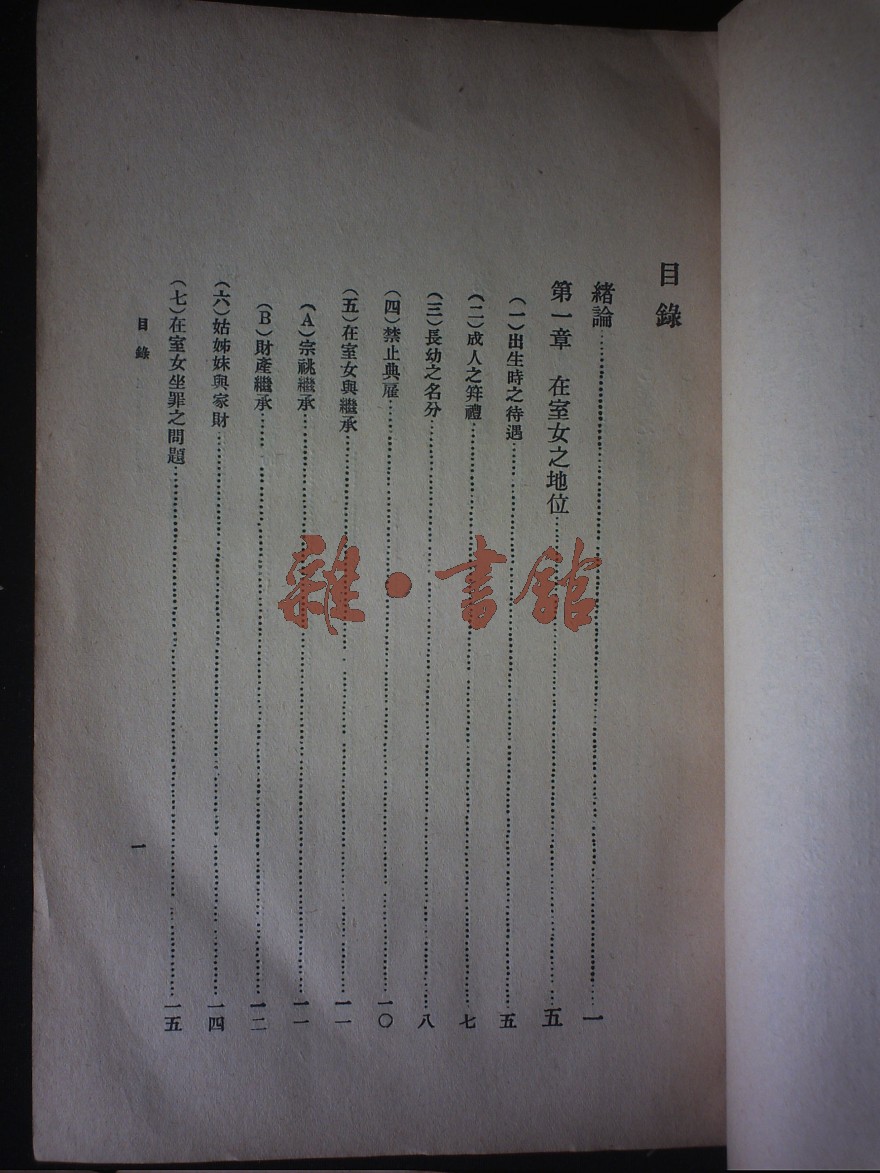 目錄
緒論……一
第一章　在室女之地位……五
（一）出生時之待遇……五
（二）成人之笄禮……七
（三）長幼之名分……八
（四）禁止典雇……一〇
（五）在室女與繼承……一一
（A）宗祧繼承……一一
（B）財產繼承……一二
（六）姑姊妹與家財……一四
（七）在室女坐罪之問題……一五
目錄
一
雜・書館